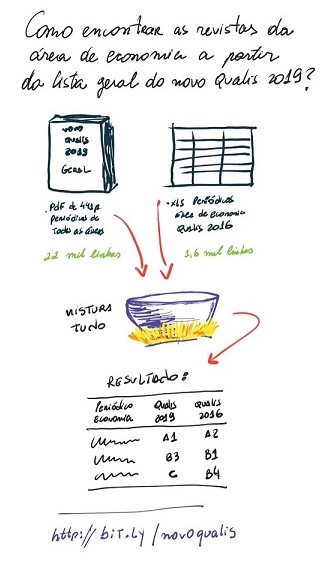 Como encontrar as revistas da
área de economia a partir
da lista geral do novo Qualis 2019?
novo
Qualis
2019
GERAL
.Pdf de 441p
Periódicos de
Todas as áreas
22 mil linhas
.xls Periódicos
área de economia
Qualis 2016
1,6 mil linhas
MISTURA
TUDO
RESULTADO:
Periódico Qualis Qualis
Economia 2019 2016
A1 A2
B3 B1
C B4
http://bit.ly/novoqualis